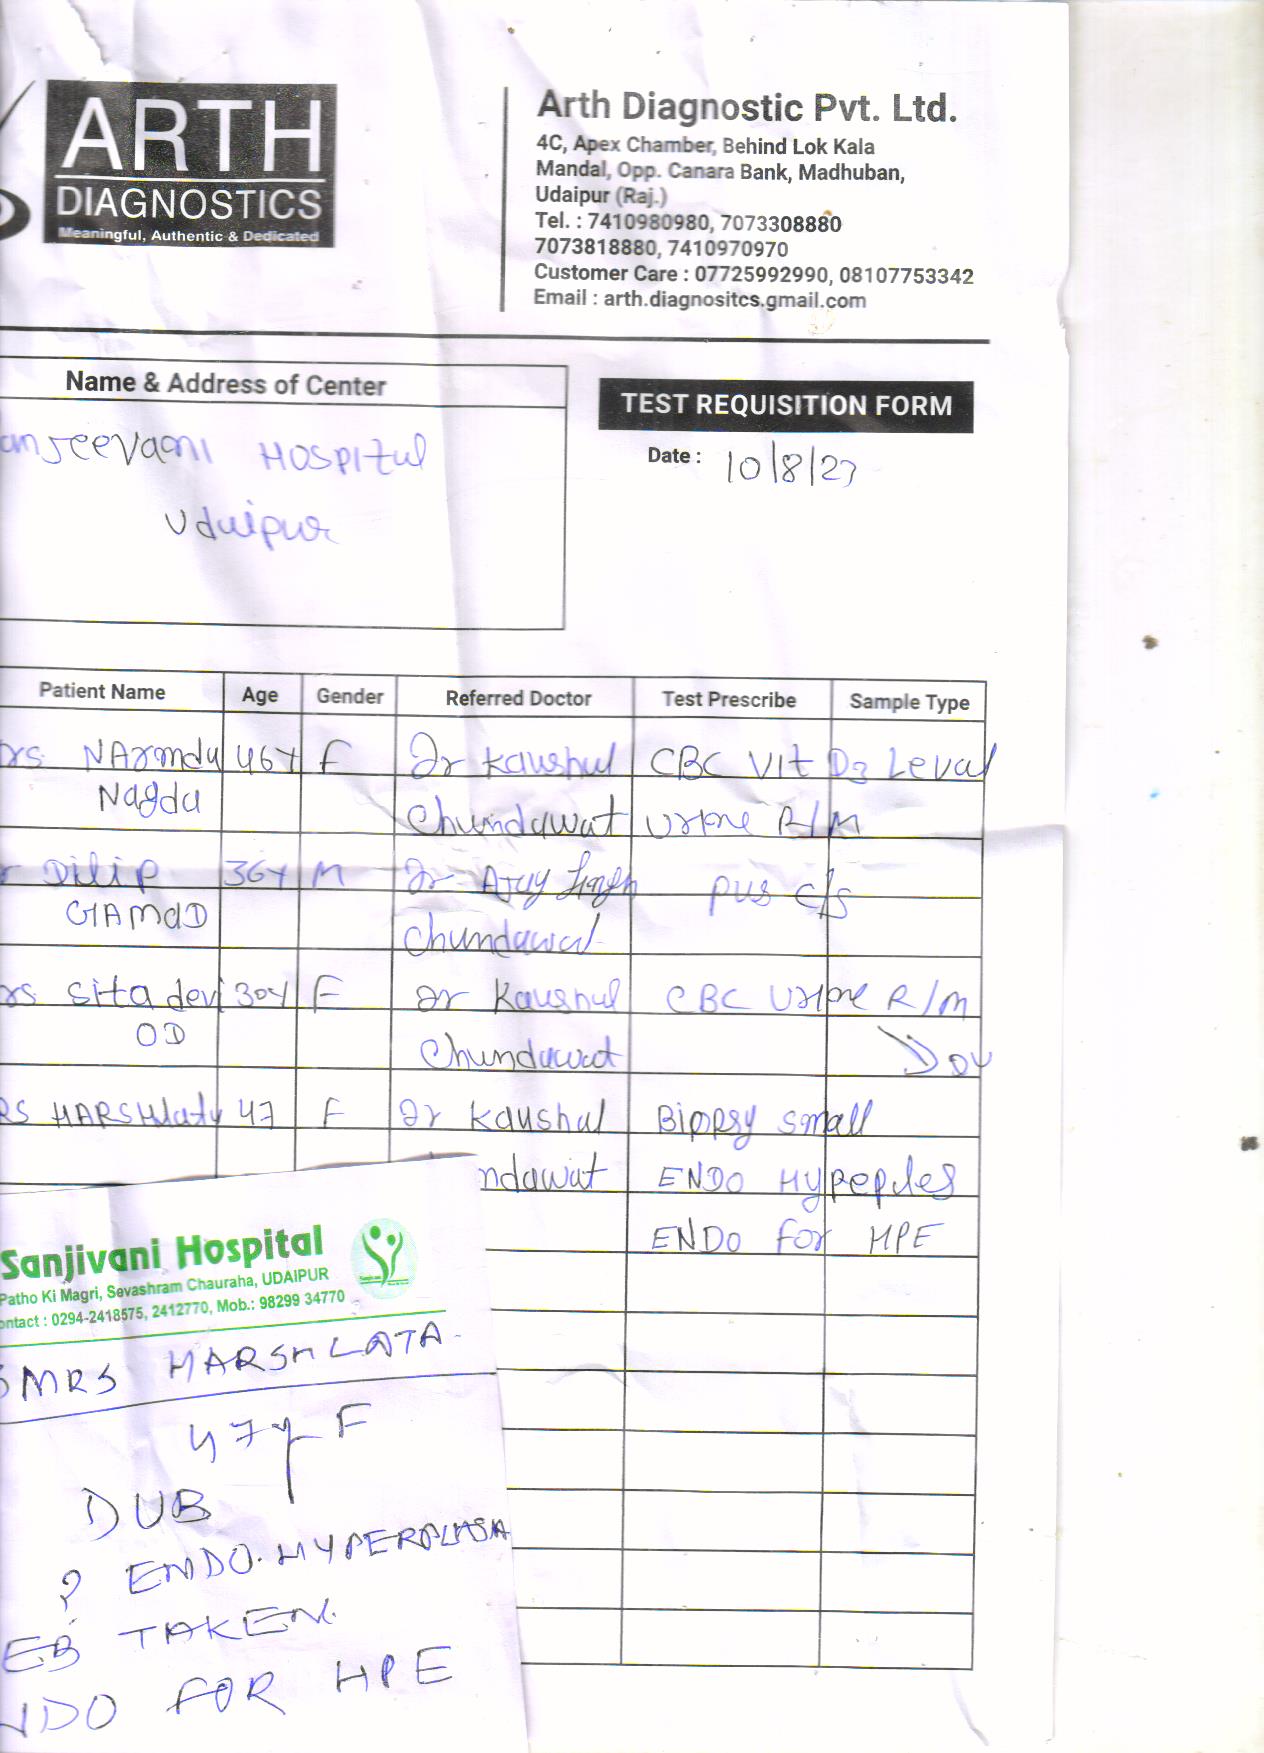 ARTH
DIAGNOSTICS
Meaningful, Authentic & Dedicated
Arth Diagnostic Pvt. Ltd.
4C, Apex Chamber, Behind Lok Kala
Mandal, Opp. Canara Bank, Madhuban,
Udaipur (Raj.)
Tel. : 7410980980, 7073308880
7073818880, 7410970970
Customer Care : 07725992990, 08107753342
Email : arth.diagnositcs.gmail.com
Name & Address of Center
TEST REQUISITION FORM
anjeevani HOSPItul
Udaipur
Date : 10/8/23
Patient Name Age Gender Referred Doctor Test Prescribe Sample Type
rs NArmdu 46Y F Dr Kaushul CBC Vit D3 Leval
Nagda Chundawat Urine R/M
r Dilip 36Y M Dr Ajay Singh pus c/s
GAMAD Chundawat
rs Sita devi 30Y F Dr Kaushul CBC Urine R/M
OD Chundawat
RS HARSHlaty 47 F Dr Kaushul Biopsy small
ndawat ENDO Hypeples
ENDO For HPE
Sanjivani Hospital
Patho Ki Magri, Sevashram Chauraha, UDAIPUR
ontact : 0294-2418575, 2412770, Mob.: 98299 34770
MRS HARSHLATA
47y F
DUB
? ENDO. HYPERPLASA
EB TAKEN
NDO FOR HPE